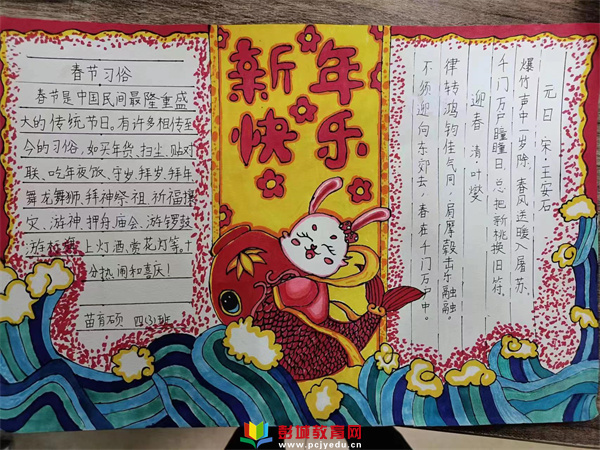 春节习俗
春节是中国民间最隆重盛
大的传统节日。有许多相传至
今的习俗,如买年货、扫尘、贴对
联、吃年夜饭、守岁、拜岁、拜年、
舞龙舞狮、拜神祭祖、祈福攘
灾、游神、押舟、庙会、游锣鼓、
游标旗、上灯酒、赏花灯等,十
分热闹和喜庆!
苗育硕 四(3)班
新年
快乐
元日 宋·王安石
爆竹声中一岁除,春风送暖入屠苏。
千门万户曈曈日,总把新桃换旧符。
迎春 清 叶燮
律转鸿钧佳气同,肩摩毂击乐融融。
不须迎向东郊去,春在千门万户中。
彭城教育网
www.pcjyedu.cn